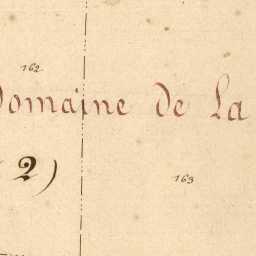 162
Domaine De La
2)
163